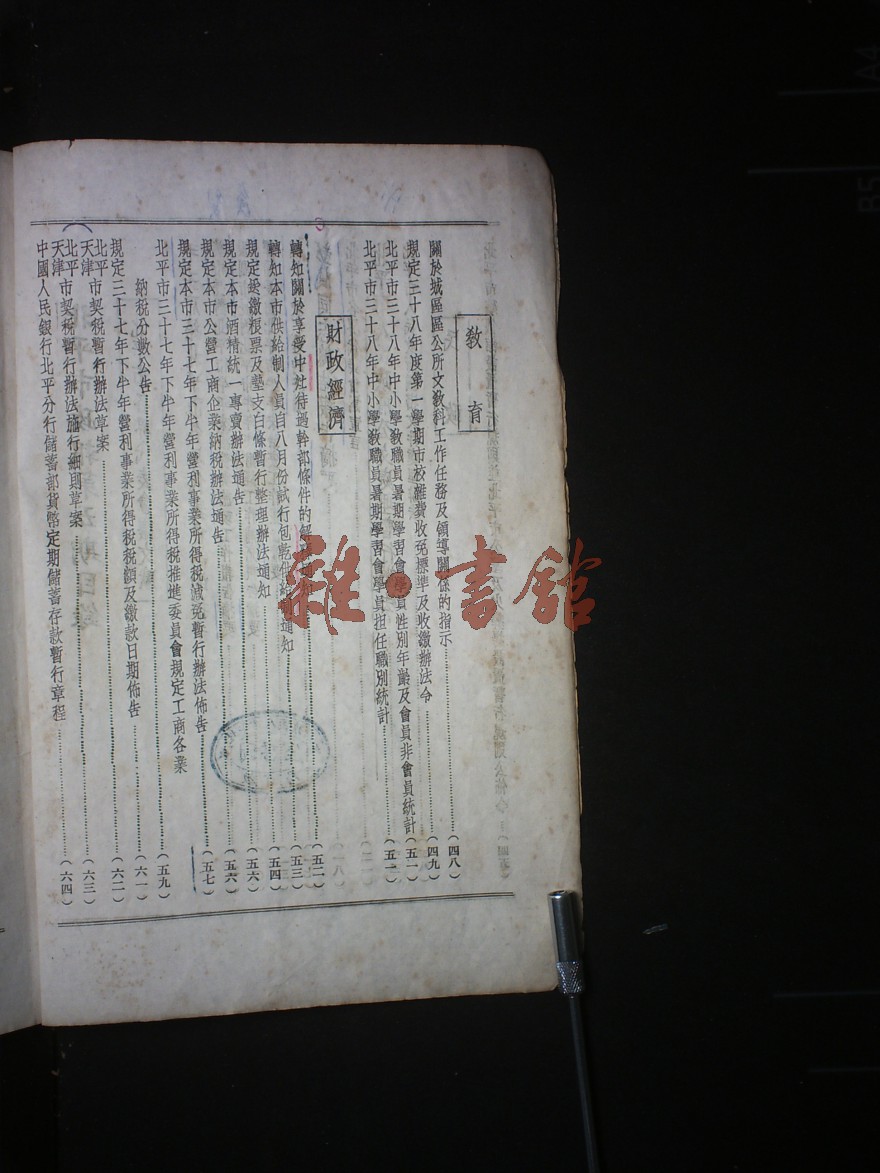 教育
關於城區區公所文教科工作任務及領導關係的指示……（四八）
規定三十八年度第一學期市校雜費收免標準及收繳辦法令……（四九）
北平市三十八年中小學教職員暑期學習會學員性別年齡及會員非會員統計（五一）
北平市三十八年中小學教職員暑期學習會學員担任職別統計……（五一）
財政經濟
轉知關於享受中灶待遇幹部條件的……（五二）
轉知本市供給制人員自八月份試行包乾供給制通知……（五三）
規定送繳粮票及墊支白條暫行整理辦法通知……（五四）
規定本市酒精統一專賣辦法通告……（五六）
規定本市公營工商企業納稅辦法通告……（五六）
規定本市三十七年下半年營利事業所得稅減免暫行辦法佈告……（五七）
北平市三十七年下半年營利事業所得稅推進委員會規定工商各業
納稅分數公告……（五九）
規定三十七年下半年營利事業所得稅稅額及繳款日期佈告……（六一）
北平市天津市契稅暫行辦法草案……（六二）
北平市天津市契稅暫行辦法施行細則草案……（六三）
中國人民銀行北平分行儲蓄部貨幣定期儲蓄存款暫行章程……（六四）
雜·書館
A4
B5